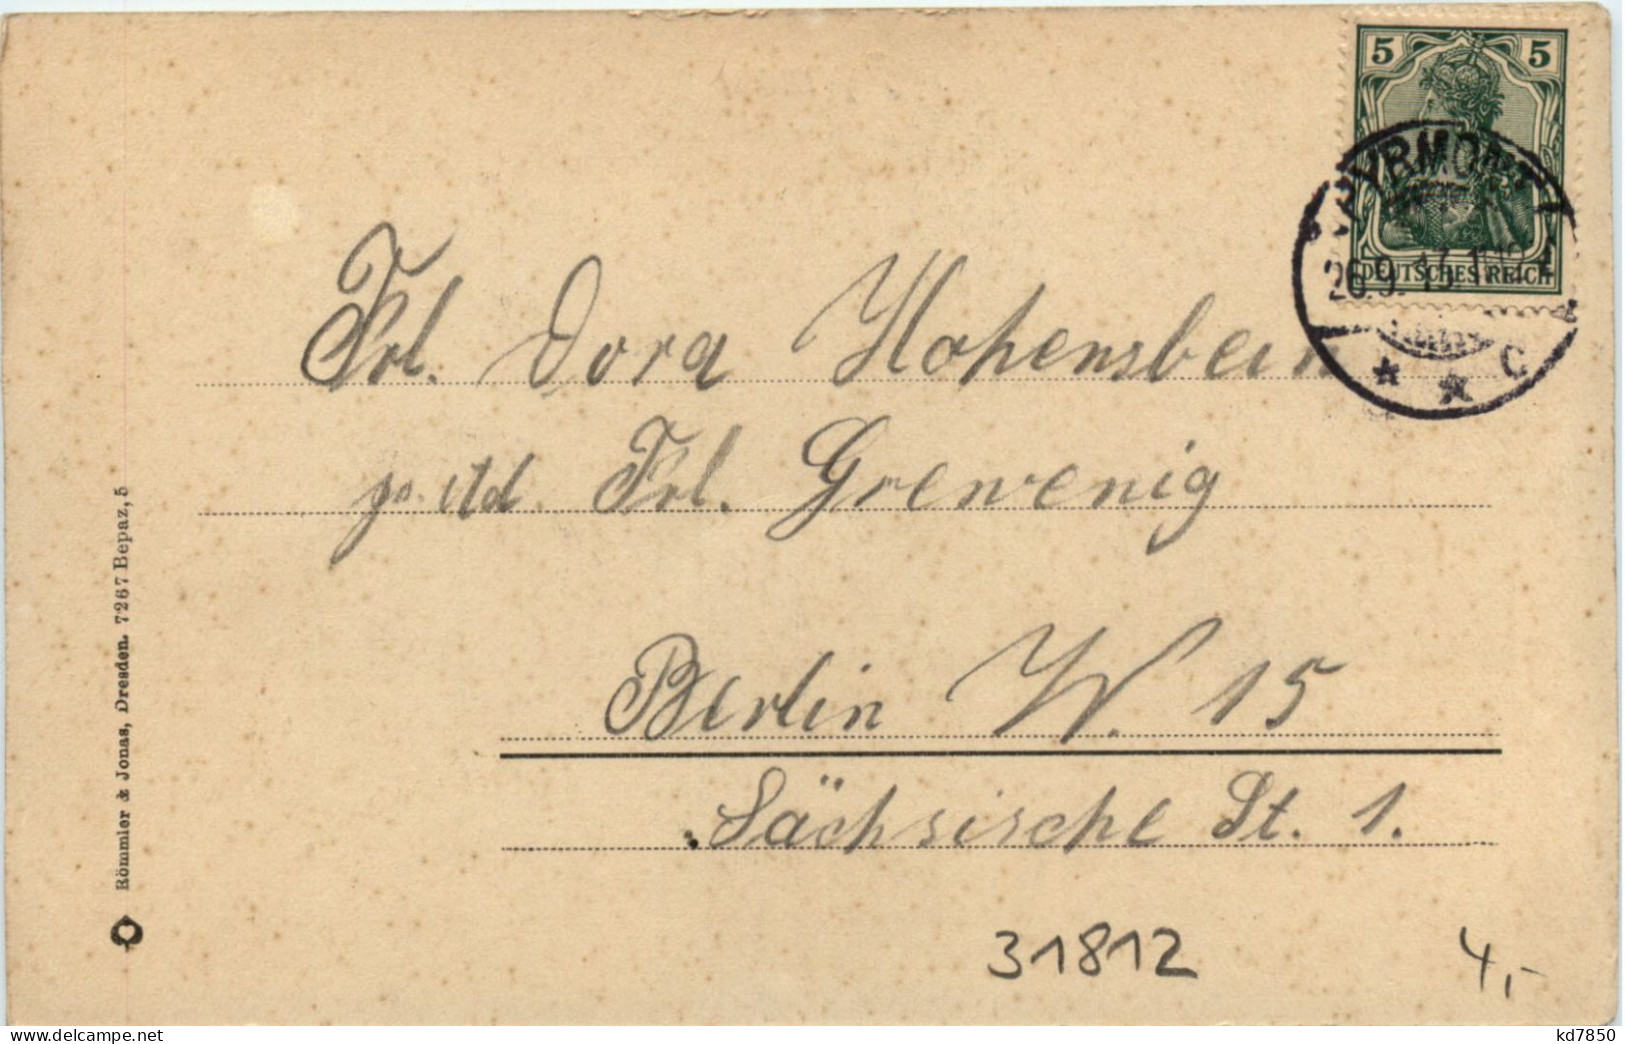 5 5
DEUTSCHES REICH
PYRMONT
26.9.
* * C
Frl. Dora Hohensbein
p. Ad. Frl. Grewenig
Berlin W. 15
Sächsische St. 1.
Römmler & Jonas, Dresden. 7267 Bepaz, 5
31812
4,-
www.delcampe.net
kd7850